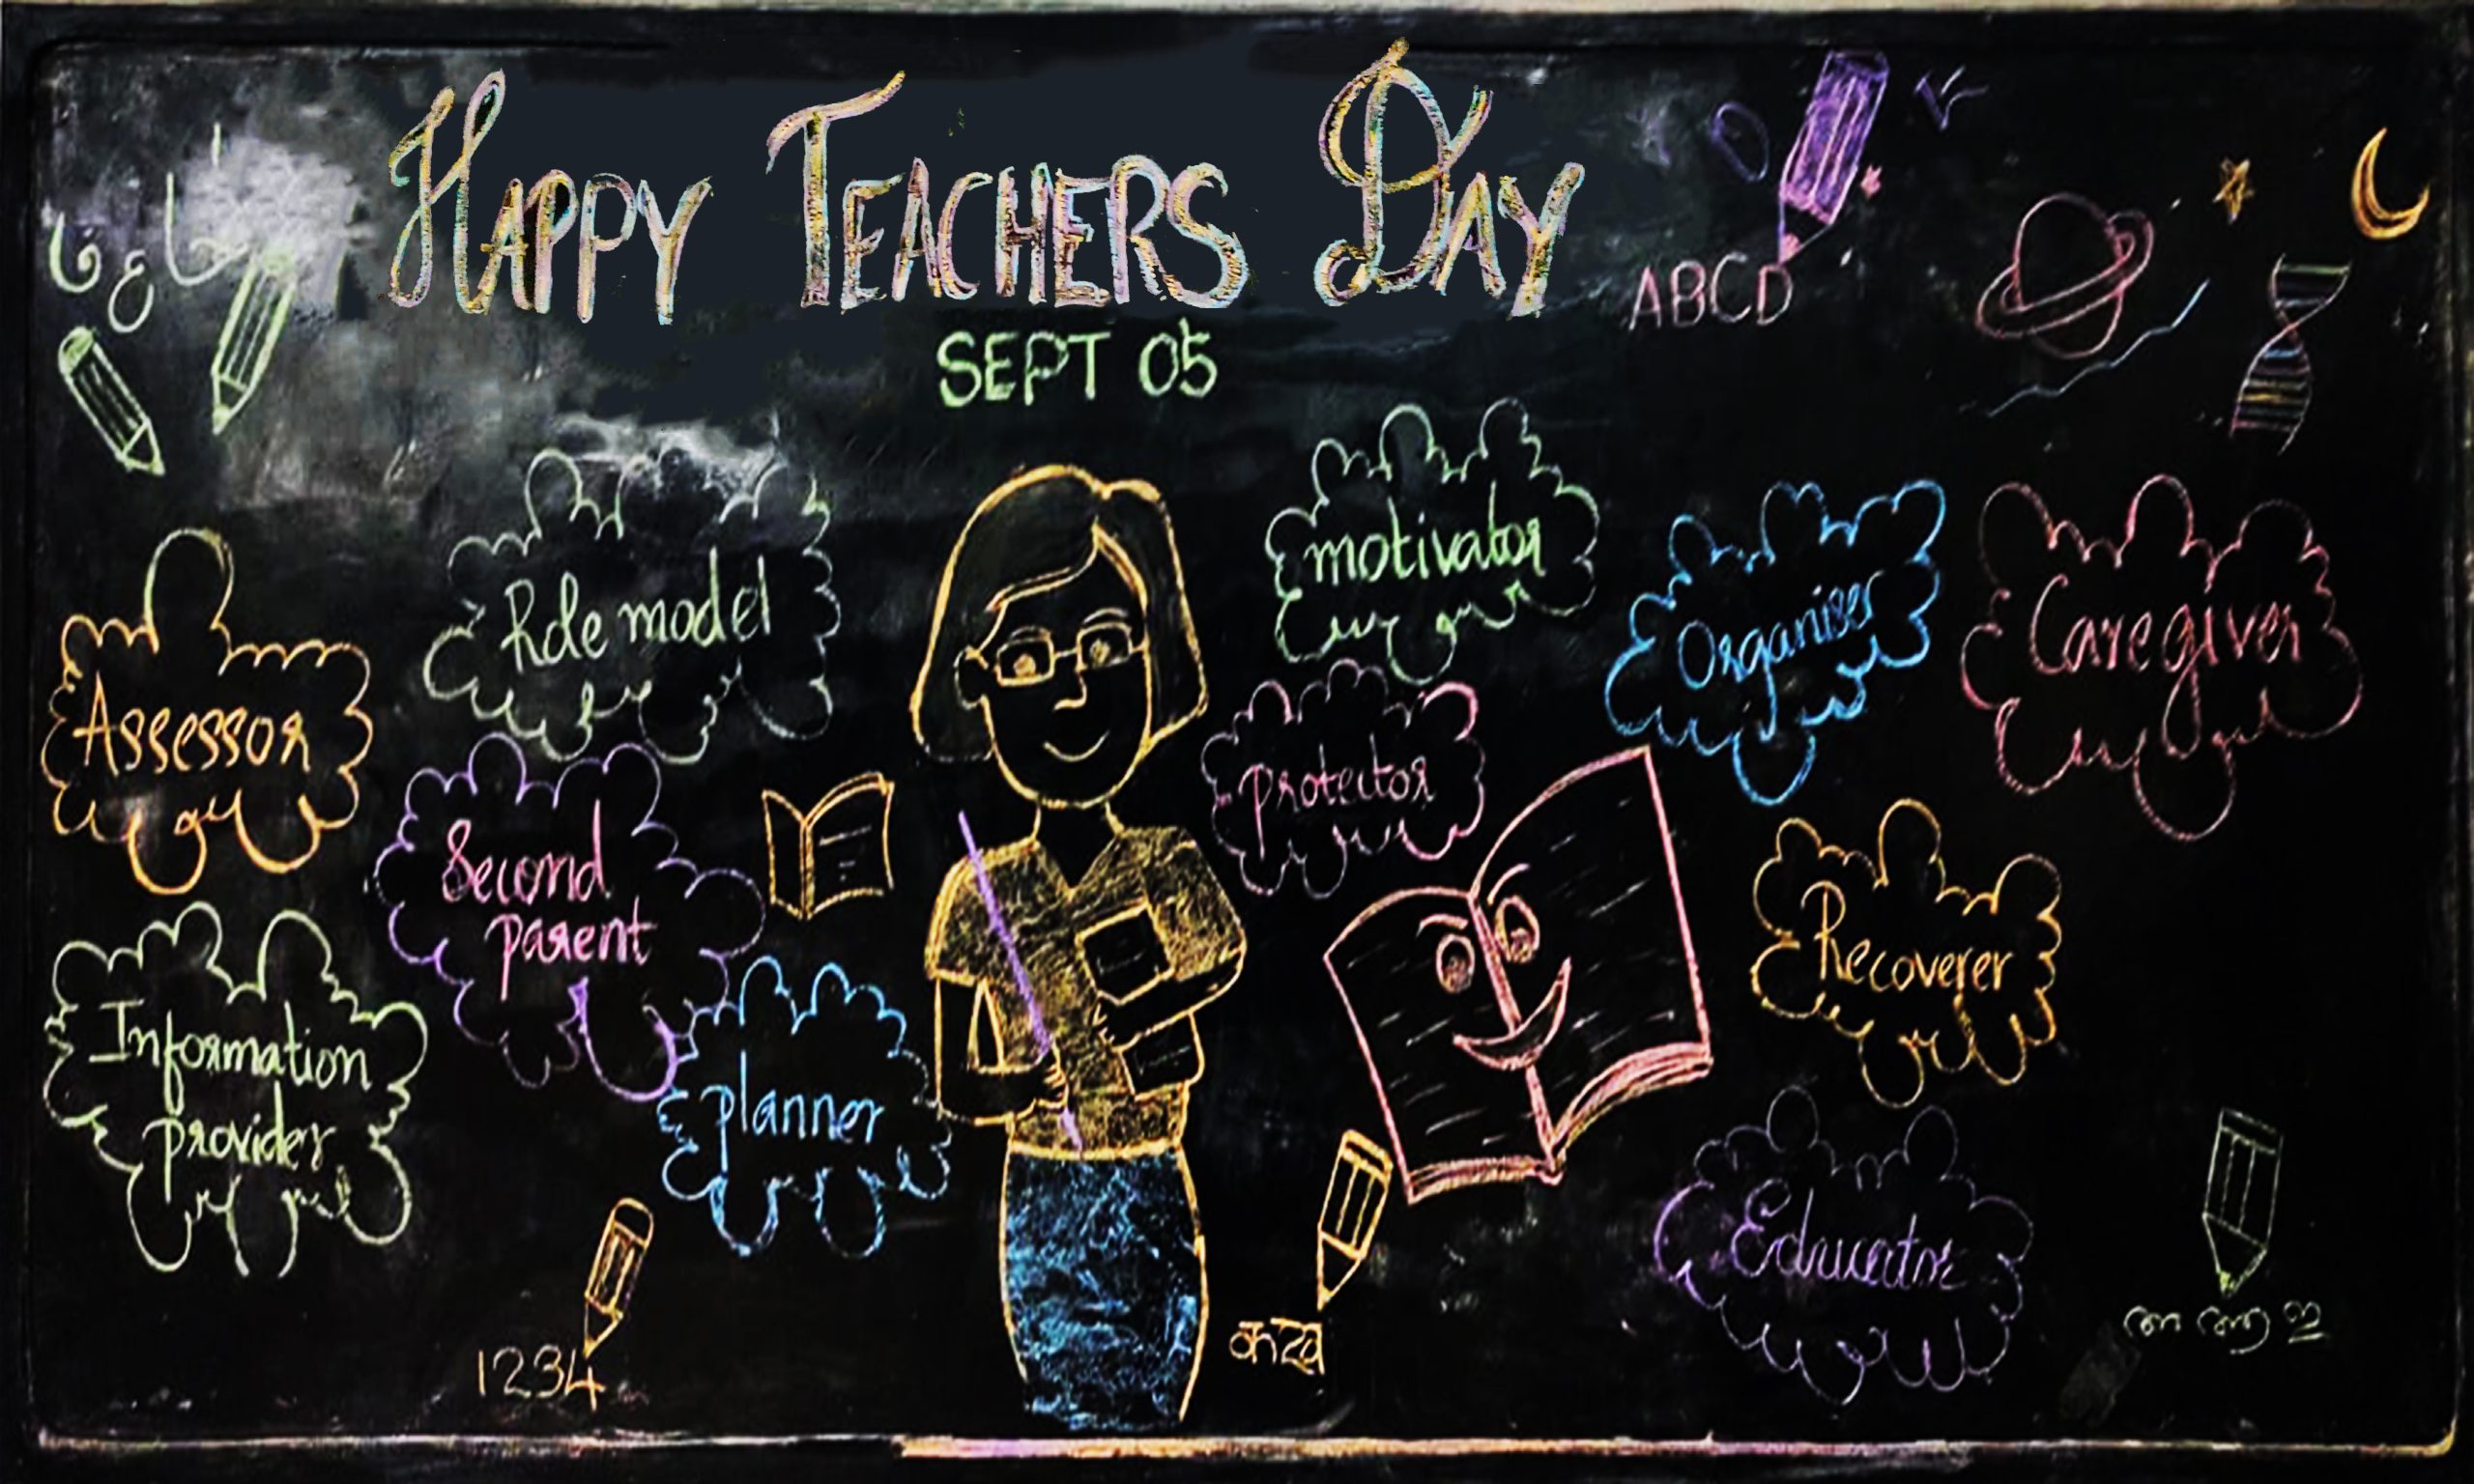 HAPPY TEACHERS DAY
SEPT 05
ABCD
Role model
motivator
Organiser
Caregiver
Assessor
protector
Second
parent
Recoverer
Information
provider
planner
Educator
1234
कख
അ ആ ഇ